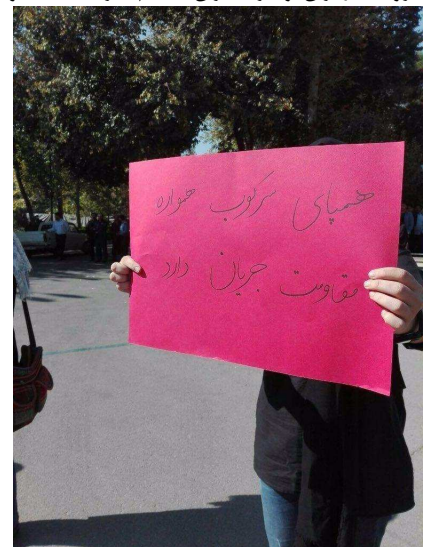 همپای سرکوب همواره
مقاومت جریان دارد